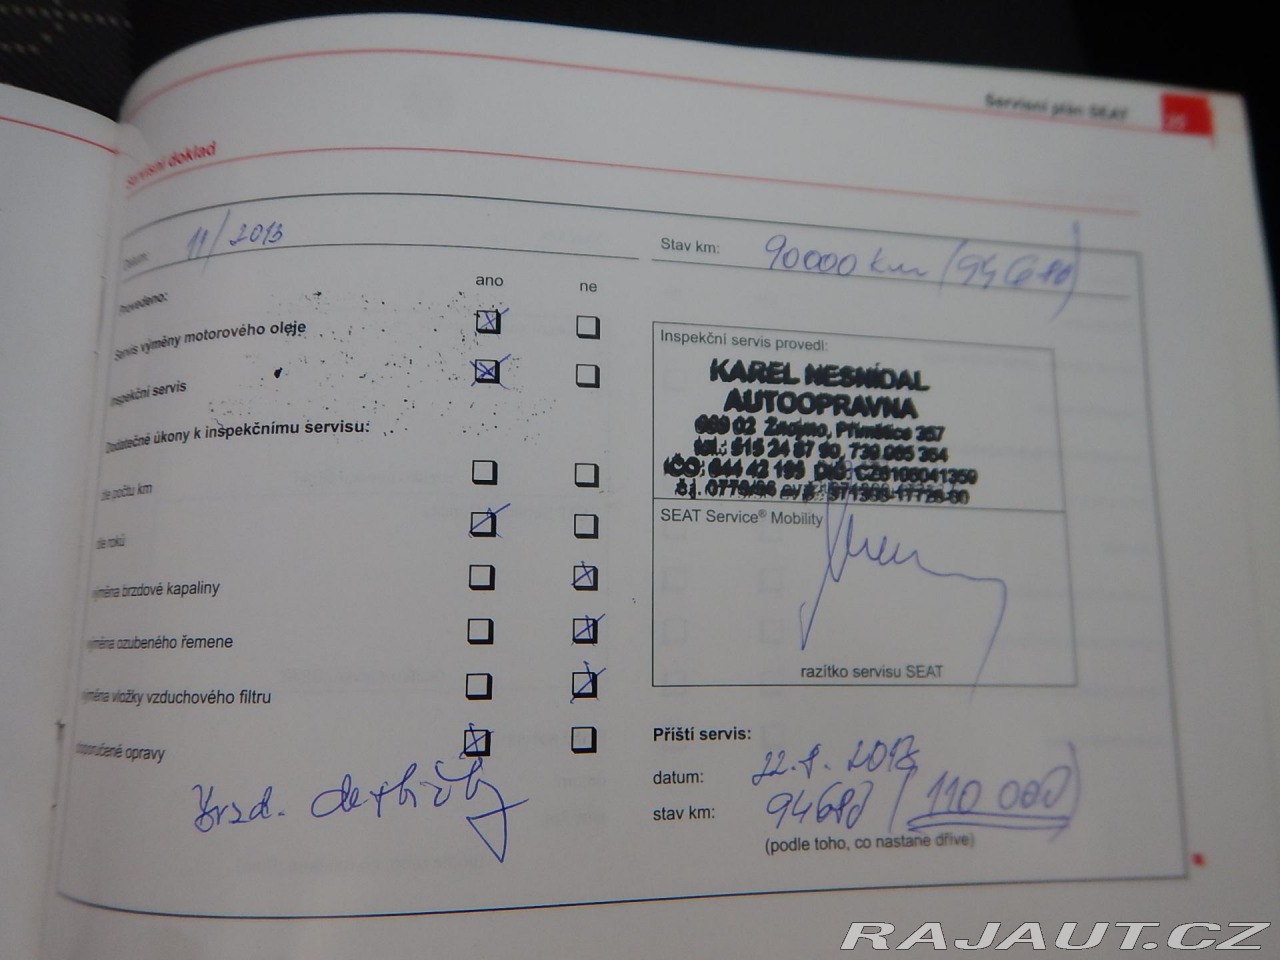 Servisní plán SEAT
Servisní doklad
Datum: 11/2013
Stav km: 90000 km (94680)
Provedeno:
ano ne
Servis výměny motorového oleje
Inspekční servis
Dodatečné úkony k inspekčnímu servisu:
dle počtu km
dle roků
výměna brzdové kapaliny
výměna ozubeného řemene
výměna vložky vzduchového filtru
doporučené opravy
Brzd. destičky
Inspekční servis provedl:
KAREL NESNÍDAL
AUTOOPRAVNA
669 02 Znojmo, Přímětice 357
tel.: 515 24 87 90,
IČO: 644 42 DIČ:
SEAT Service® Mobility
razítko servisu SEAT
Příští servis:
datum: 2017
stav km: 94680 (110 000)
(podle toho, co nastane dříve)
RAJAUT.CZ